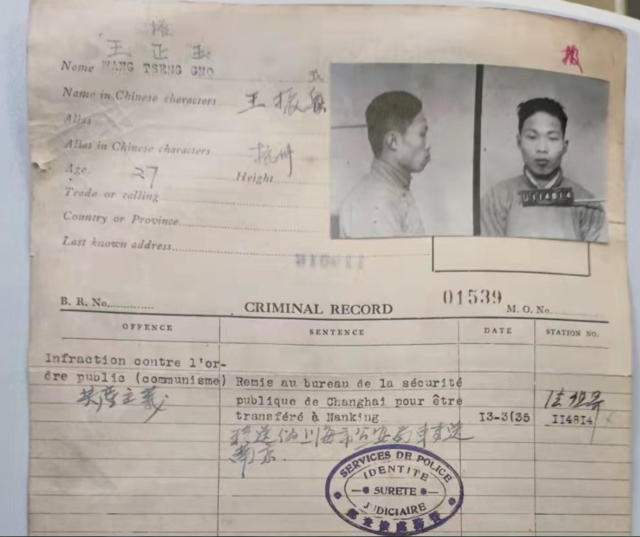 王 正 玉
Name WANG TSENG GNO
Name in Chinese characters 王振
Alias
Alias in Chinese characters 杭州
Age 27 Height
Trade or calling
Country or Province
Last known address
B. R. No. CRIMINAL RECORD 01539 M. O. No.
OFFENCE SENTENCE DATE STATION NO.
Infraction contre l'or-
dre public (communisme) Remis au bureau de la sécurité
共产主義 publique de Changhai pour être
transféré à Nanking 13-3(35 114814
上海市公安局
南京
SERVICES DE POLICE
IDENTITE
SURETE
JUDICIAIRE